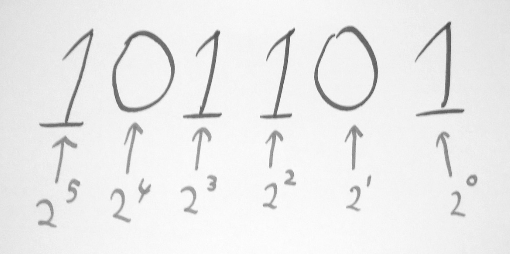 1 0 1 1 0 1
2⁵ 2⁴ 2³ 2² 2¹ 2⁰